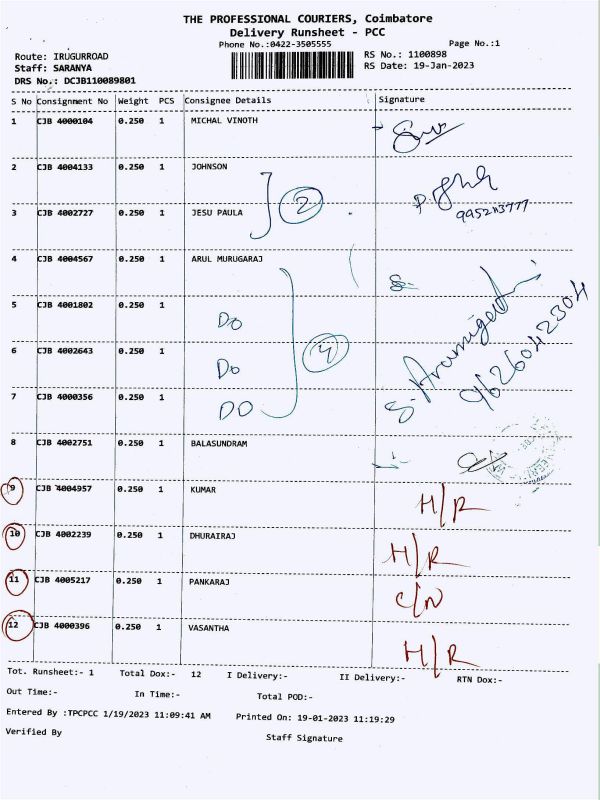 THE PROFESSIONAL COURIERS, Coimbatore
Delivery Runsheet - PCC
Phone No.:0422-3505555
Page No.:1
Route: IRUGURROAD
RS No.: 1100898
Staff: SARANYA
RS Date: 19-Jan-2023
DRS No.: DCJB110089801
S No Consignment No Weight PCS Consignee Details Signature
1 CJB 4000104 0.250 1 MICHAL VINOTH
2 CJB 4004133 0.250 1 JOHNSON
2
3 CJB 4002727 0.250 1 JESU PAULA
4 CJB 4004567 0.250 1 ARUL MURUGARAJ
5 CJB 4001802 0.250 1 DO
4
9626042304
6 CJB 4002643 0.250 1 DO
7 CJB 4000356 0.250 1 DO
8 CJB 4002751 0.250 1 BALASUNDRAM
9 CJB 4004957 0.250 1 KUMAR H/R
10 CJB 4002239 0.250 1 DHURAIRAJ H/R
11 CJB 4005217 0.250 1 PANKARAJ C/N
12 CJB 4000396 0.250 1 VASANTHA H/R
Tot. Runsheet:- 1 Total Dox:- 12 I Delivery:- II Delivery:- RTN Dox:-
Out Time:- In Time:- Total POD:-
Entered By :TPCPCC 1/19/2023 11:09:41 AM Printed On: 19-01-2023 11:19:29
Verified By Staff Signature